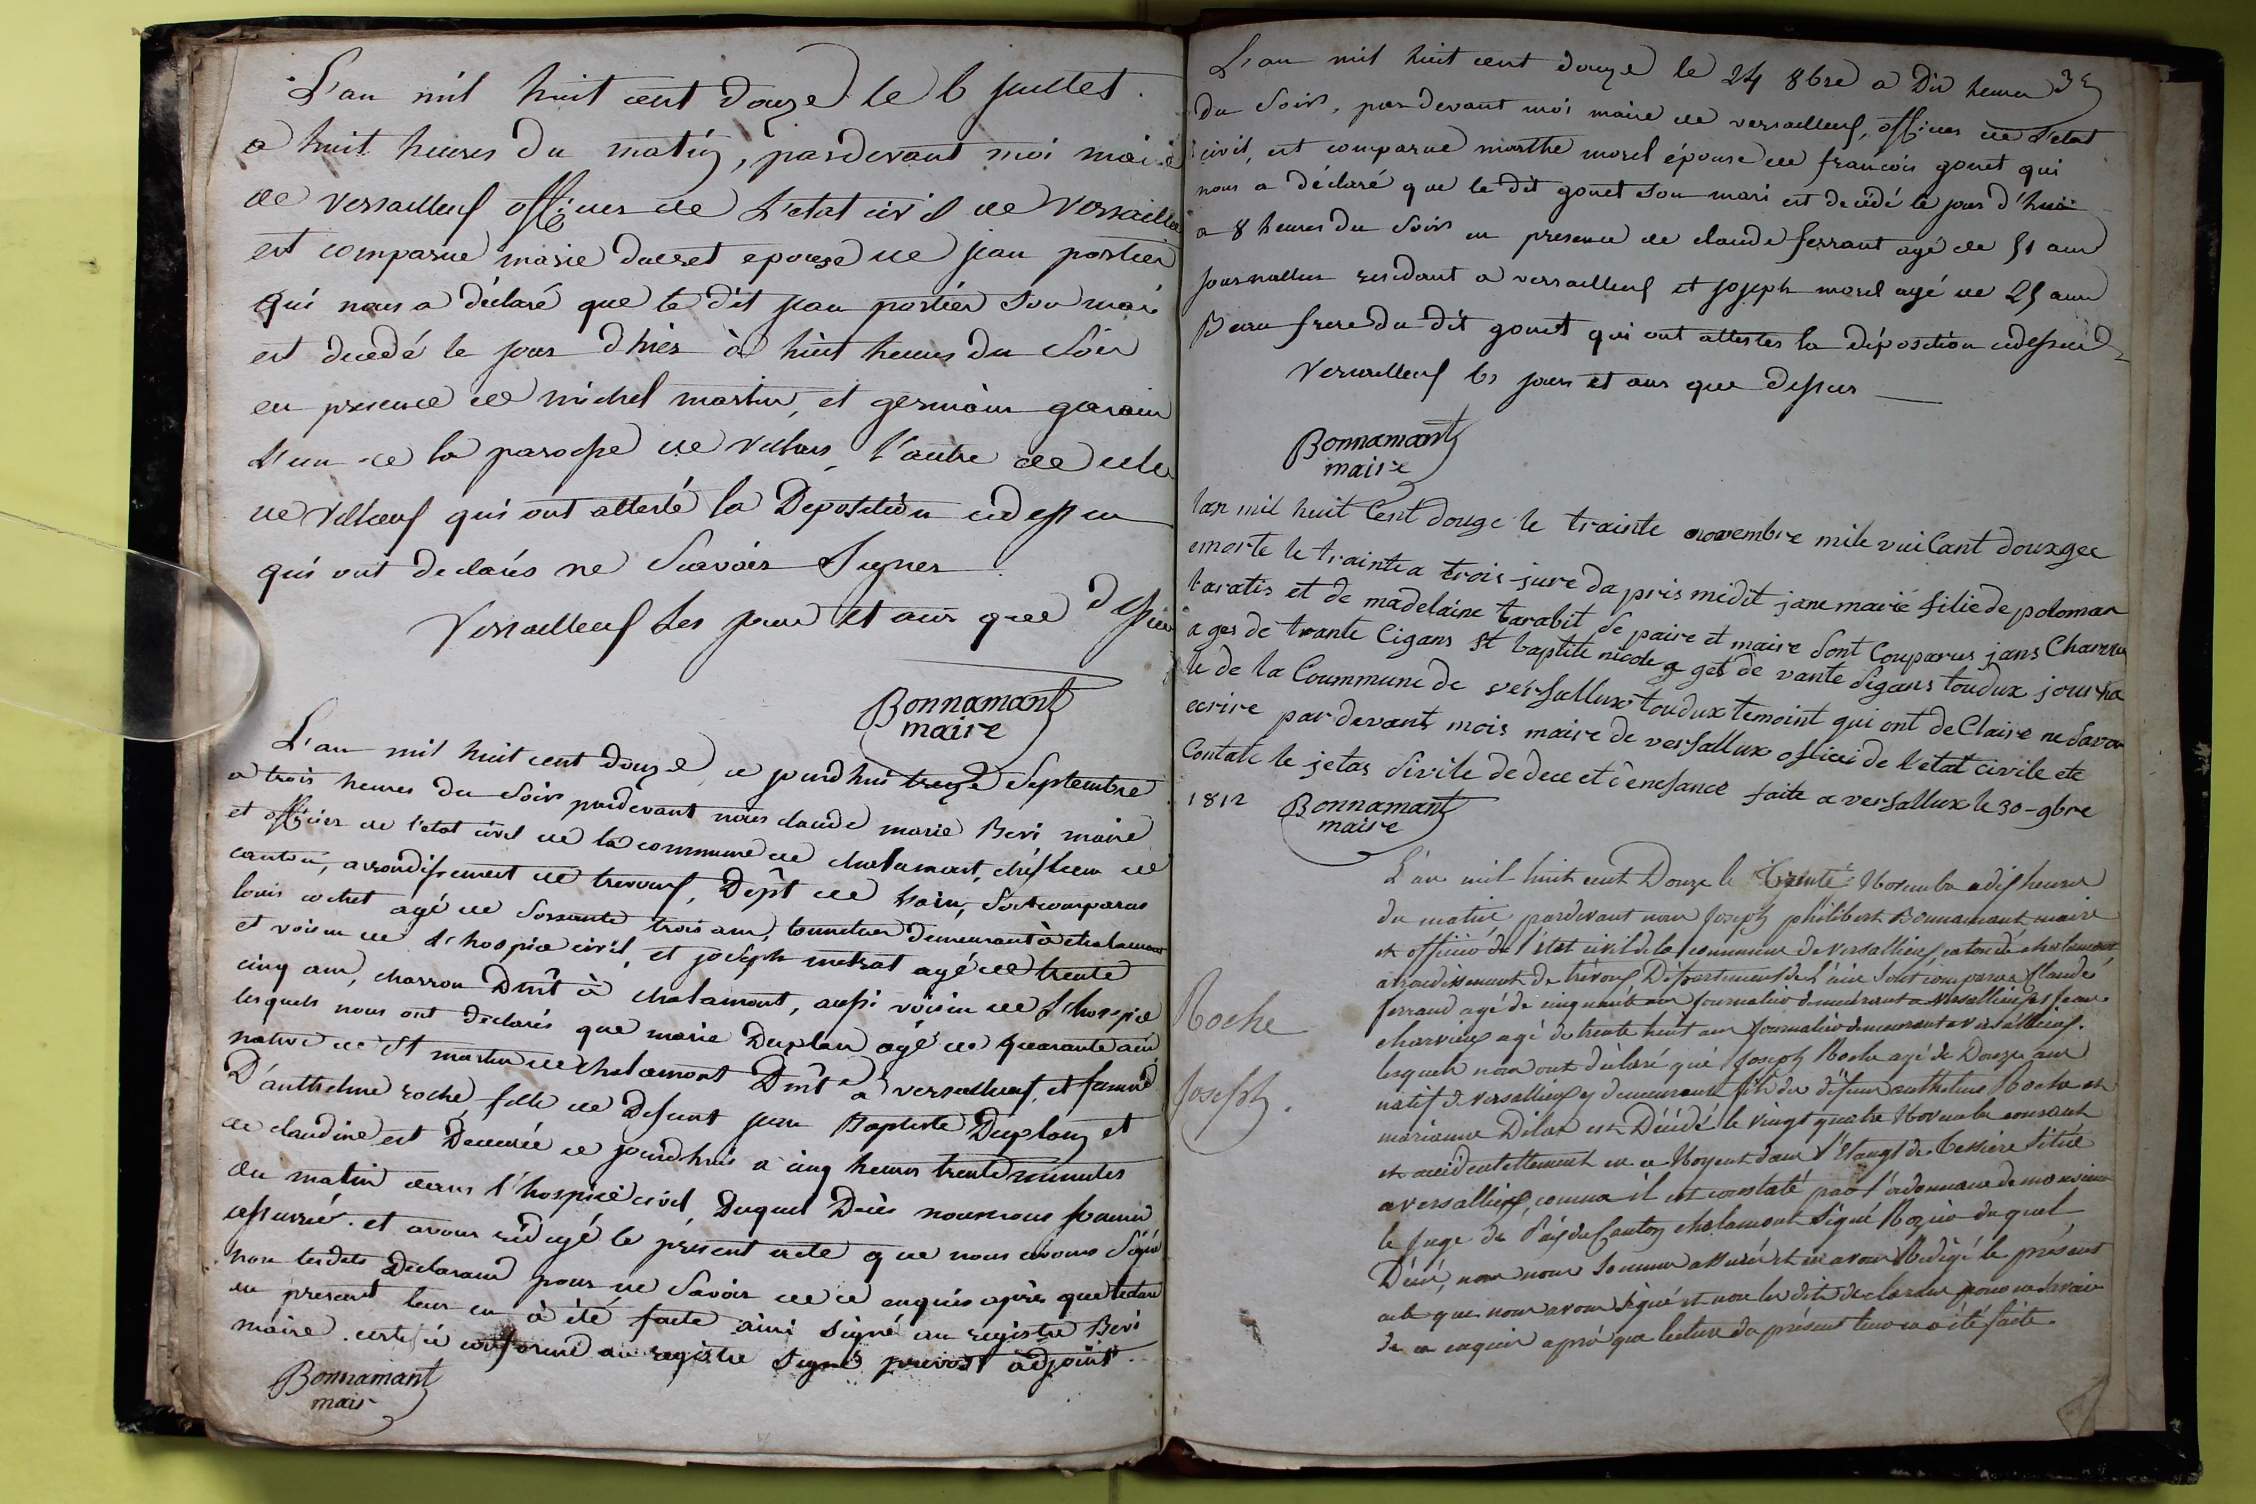 L'an mil huit cent douze le 6 juillet
a huit heures du matin, pardevant moi maire
de versailleux officier de L'etat civil de versailleux
est comparue marie ducret epouse de jean portier
qui nous a déclaré que le dit jean portier son mari
est decedé le jour d'hier à huit heures du soir
en presence de michel martin, et germain
L'un de la paroisse de villars, l'autre de celle
de qui ont attesté la Deposition cidessu
qui ont declarés ne Scavoir Signer
Versailleux les jour et an que dessus
Bonnamant
maire
L'an mil huit cent douze, ce jourdhui treize Septembre
a trois heures du Soir pardevant nous claude marie Beri maire
et officier de l'etat civil de la commune de chalamont, chef lieu de
canton, arrondissement de trevoux, Dept de Lain, Sont comparus
louis cochet agé de soixante trois ans, tonnelier demeurant à chalamont
et voisin de L'hospice civil, et joseph metrat agé de trente
cinq ans, charron Dmt à chalamont, aussi voisin de L'hospice
lesquels nous ont déclarés que marie Duplan agé de quarante ans
native de St martin de chalamont Dmt à versailleux, et femme
D'anthelme roche, fille de Defunt jean Baptiste Duplan et
de claudine est Decedée ce jourdhui a cinq heures trente minutes
du matin dans l'hospice civil, Duquel Deces nous nous sommes
assurrés et avons rédigé le présent acte que nous avons Signé
non lesdits Declarans pour ne Savoir de ce enquis après que lecture
du present leur en à été faite ainsi Signé au registre Beri
maire certifié conforme au registre Signé prevost adjoint.
Bonnamant
maire
3
L'an mil huit cent douze le 24 8bre a Dix heures
du Soir, pardevant moi maire de versailleux, officier de L'etat
civil, est comparue marthe morel épouse de francois gonet qui
nous a déclaré que le dit gonet son mari est decédé le jour d'hui
a 8 heures du Soir en presence de claude ferrant agé de 51 ans
journallier residant a versailleux et joseph morel agé de 25 ans
Beau frere du dit gonet qui ont attestes la déposition cidessus
Versailleux les jours et ans que dessus
Bonnamant
maire
lan mil huit Cent douze le trainte novembre mile vui Cant douxgee
emorte le trainte a trois jure da pris midit jane marie filie de poloman
taratis et de madelaine tarabit de paire et maire Sont Couparus jans Charvieu
ages de trante Cigans St baptite nicole ages de vante Sigans toudux journa
le de la Coummune de versallux toudux temoint qui ont deClaire ne Savoir
ecrire par devant mois maire de versallux oficie de l'etat civile ete
Contate le jetas Sivile de dece et denesance faite a versallux le 30-9bre
1812 Bonnamant
maire
Roche
Joseph.
L'an mil huit cent Douze le trente Novembre a dix heures
du matin pardevant nous Joseph philibert Bonnamant maire
et officier de l'état civil de la commune de Versailleux canton de chalamont
arrondissement de trévoux Département de L'ain Sont comparus Claude
ferrand agé de cinquante ans journalier demeurant a versailleux et jean
charvieux agé de trente huit ans journalier demeurant a versailleux.
lesquels nous ont déclaré que Joseph Roche agé de Douze ans
natif de versailleux y demeurant fils du défunt anthelme Roche et
marianne Dilas est Décédé le vingt quatre Novembre courant
et accidentellement en ce Noyant dans l'Etangt de Tessiere Situé
a versailleux, comme il est constaté par l'ordonnance de monsieur
le Juge de Paix du Canton chalamont Signé Rozier duquel
Décés, nous nous sommes assurés et en avons Redigé le présent
acte que nous avons Signé et non les dits declarans pour ne Savoir
de ce enquis aprés que lecture du présent leur en a été faite.